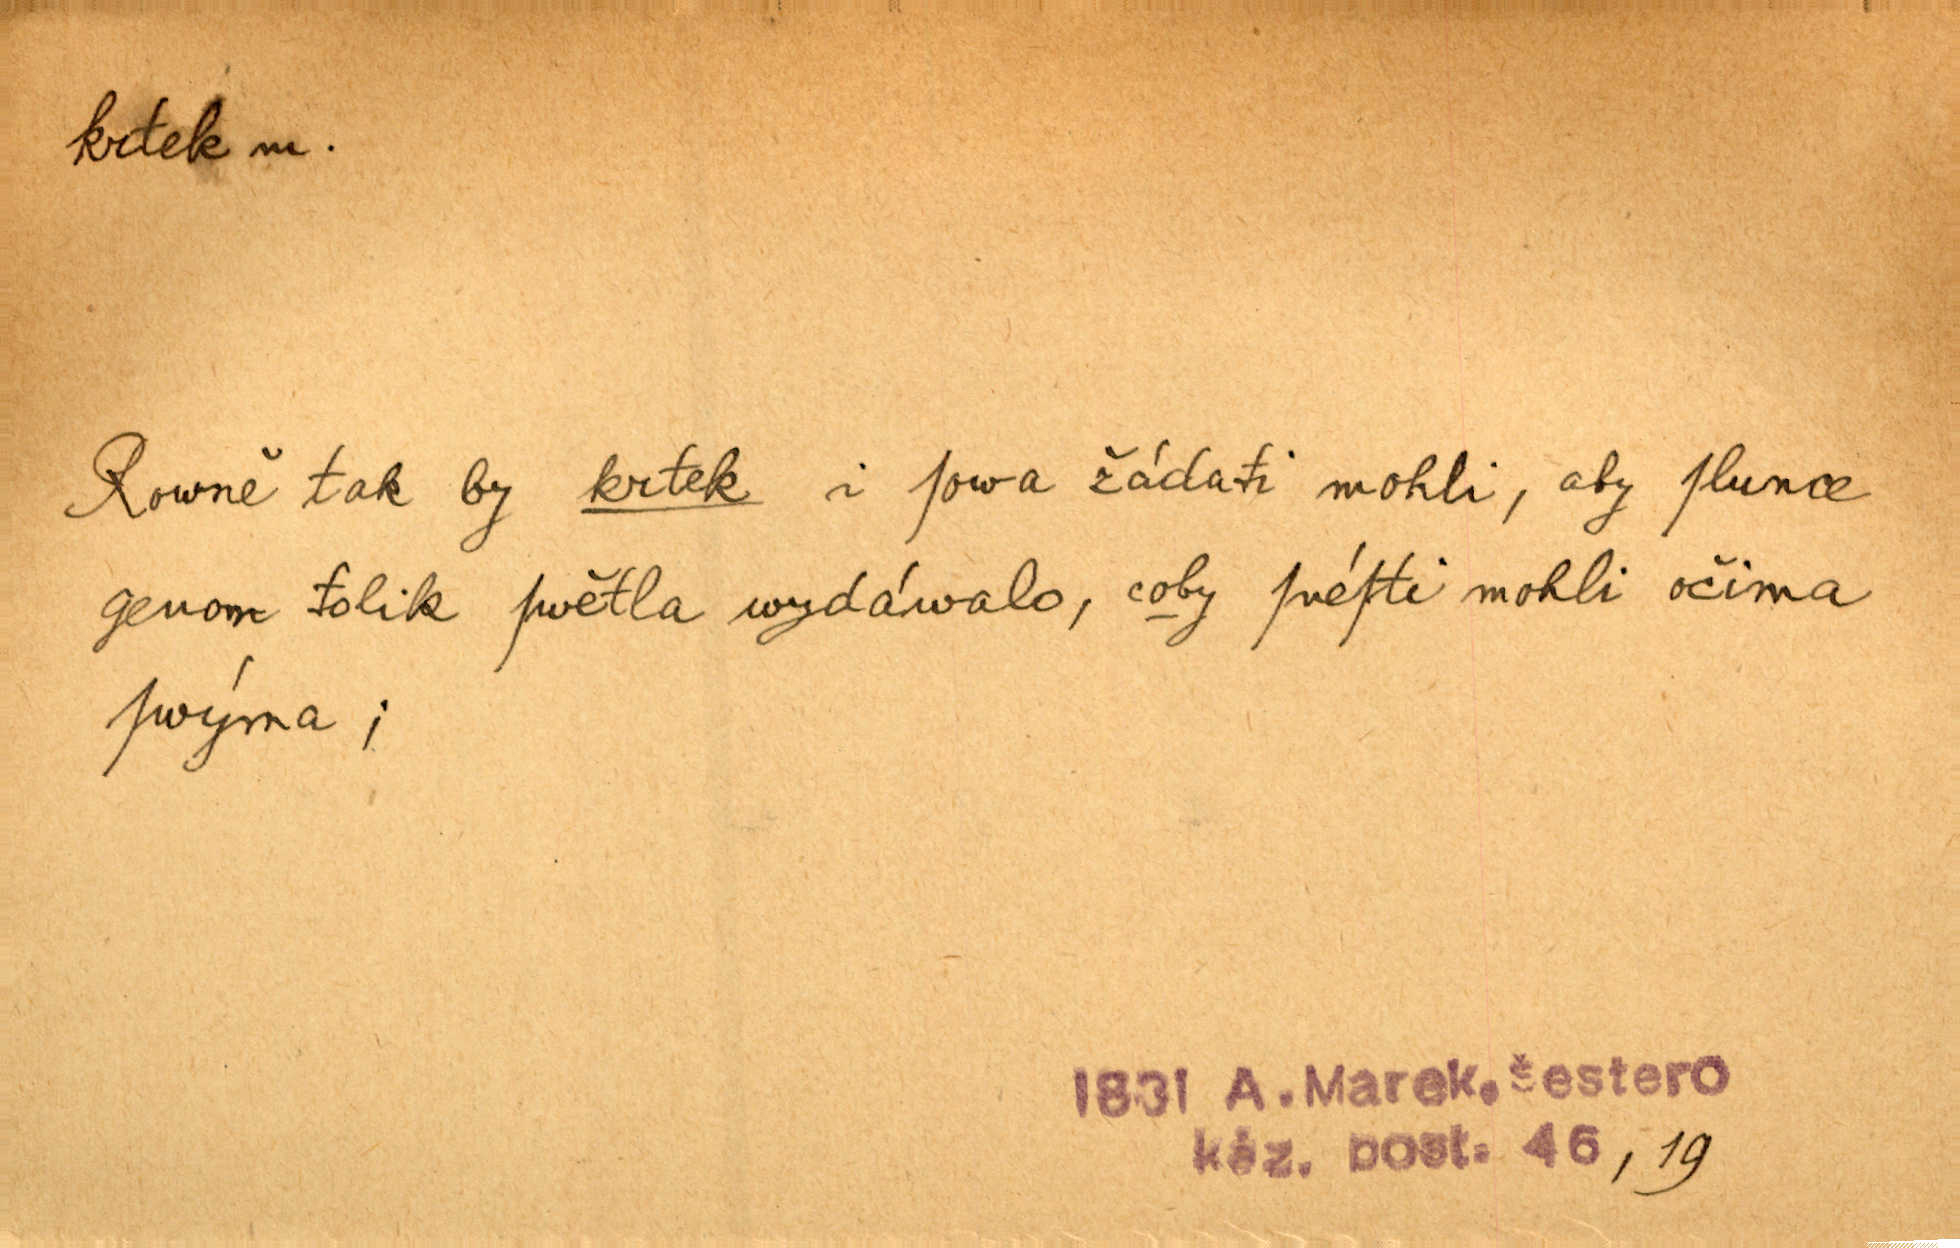 krtek m.
Rowně tak by krtek i ſowa žádati mohli, aby ſlunce
genom tolik ſwětla wydáwalo, coby ſnéſti mohli očima
ſwýma ;
1831 A. Marek. šestero
káz. post. 46, 19